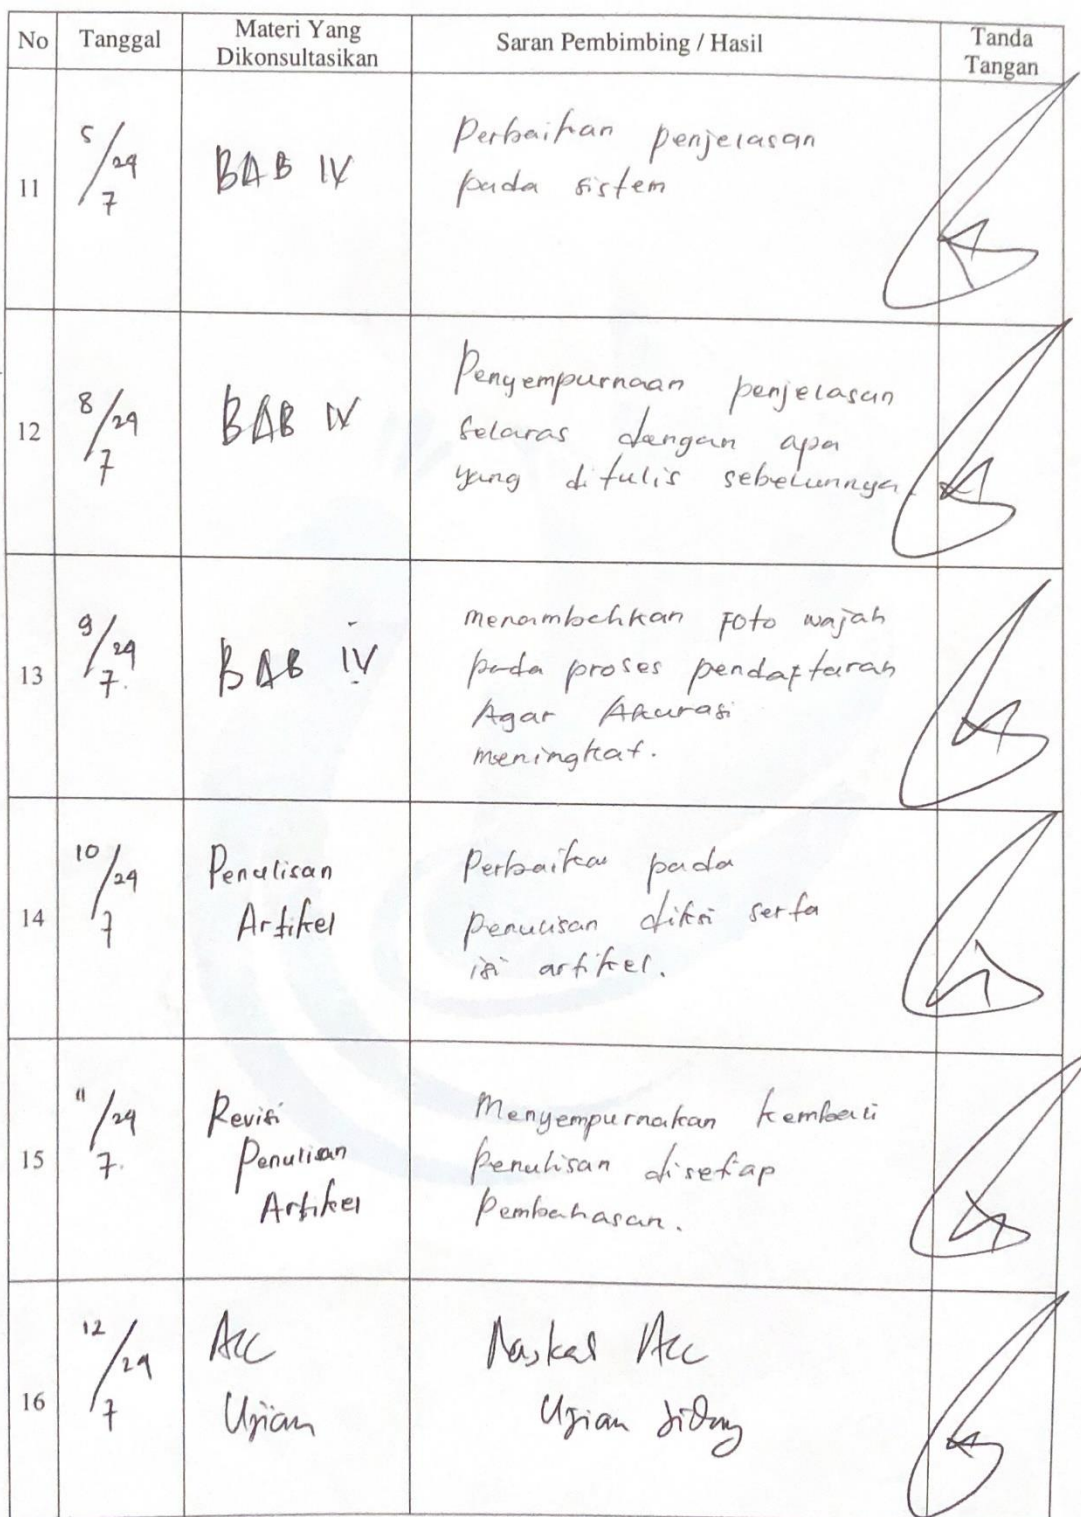 No Tanggal Materi Yang Dikonsultasikan Saran Pembimbing / Hasil Tanda Tangan
11 5/24 7 BAB IV Perbaikan penjelasan
pada sistem
12 8/24 7 BAB IV Penyempurnaan penjelasan
selaras dengan apa
yang ditulis sebelumnya.
13 9/24 7. BAB IV menambahkan Foto wajah
pada proses pendaftaran
Agar Akurasi
meningkat.
14 10/24 7 Penulisan
Artikel
Perbaikan pada
penulisan diksi serta
isi artikel.
15 11/24 7. Revisi
Penulisan
Artikel
Menyempurnakan kembali
penulisan disetiap
pembahasan.
16 12/24 7 Acc
Ujian
Naskah Acc
Ujian Sidang